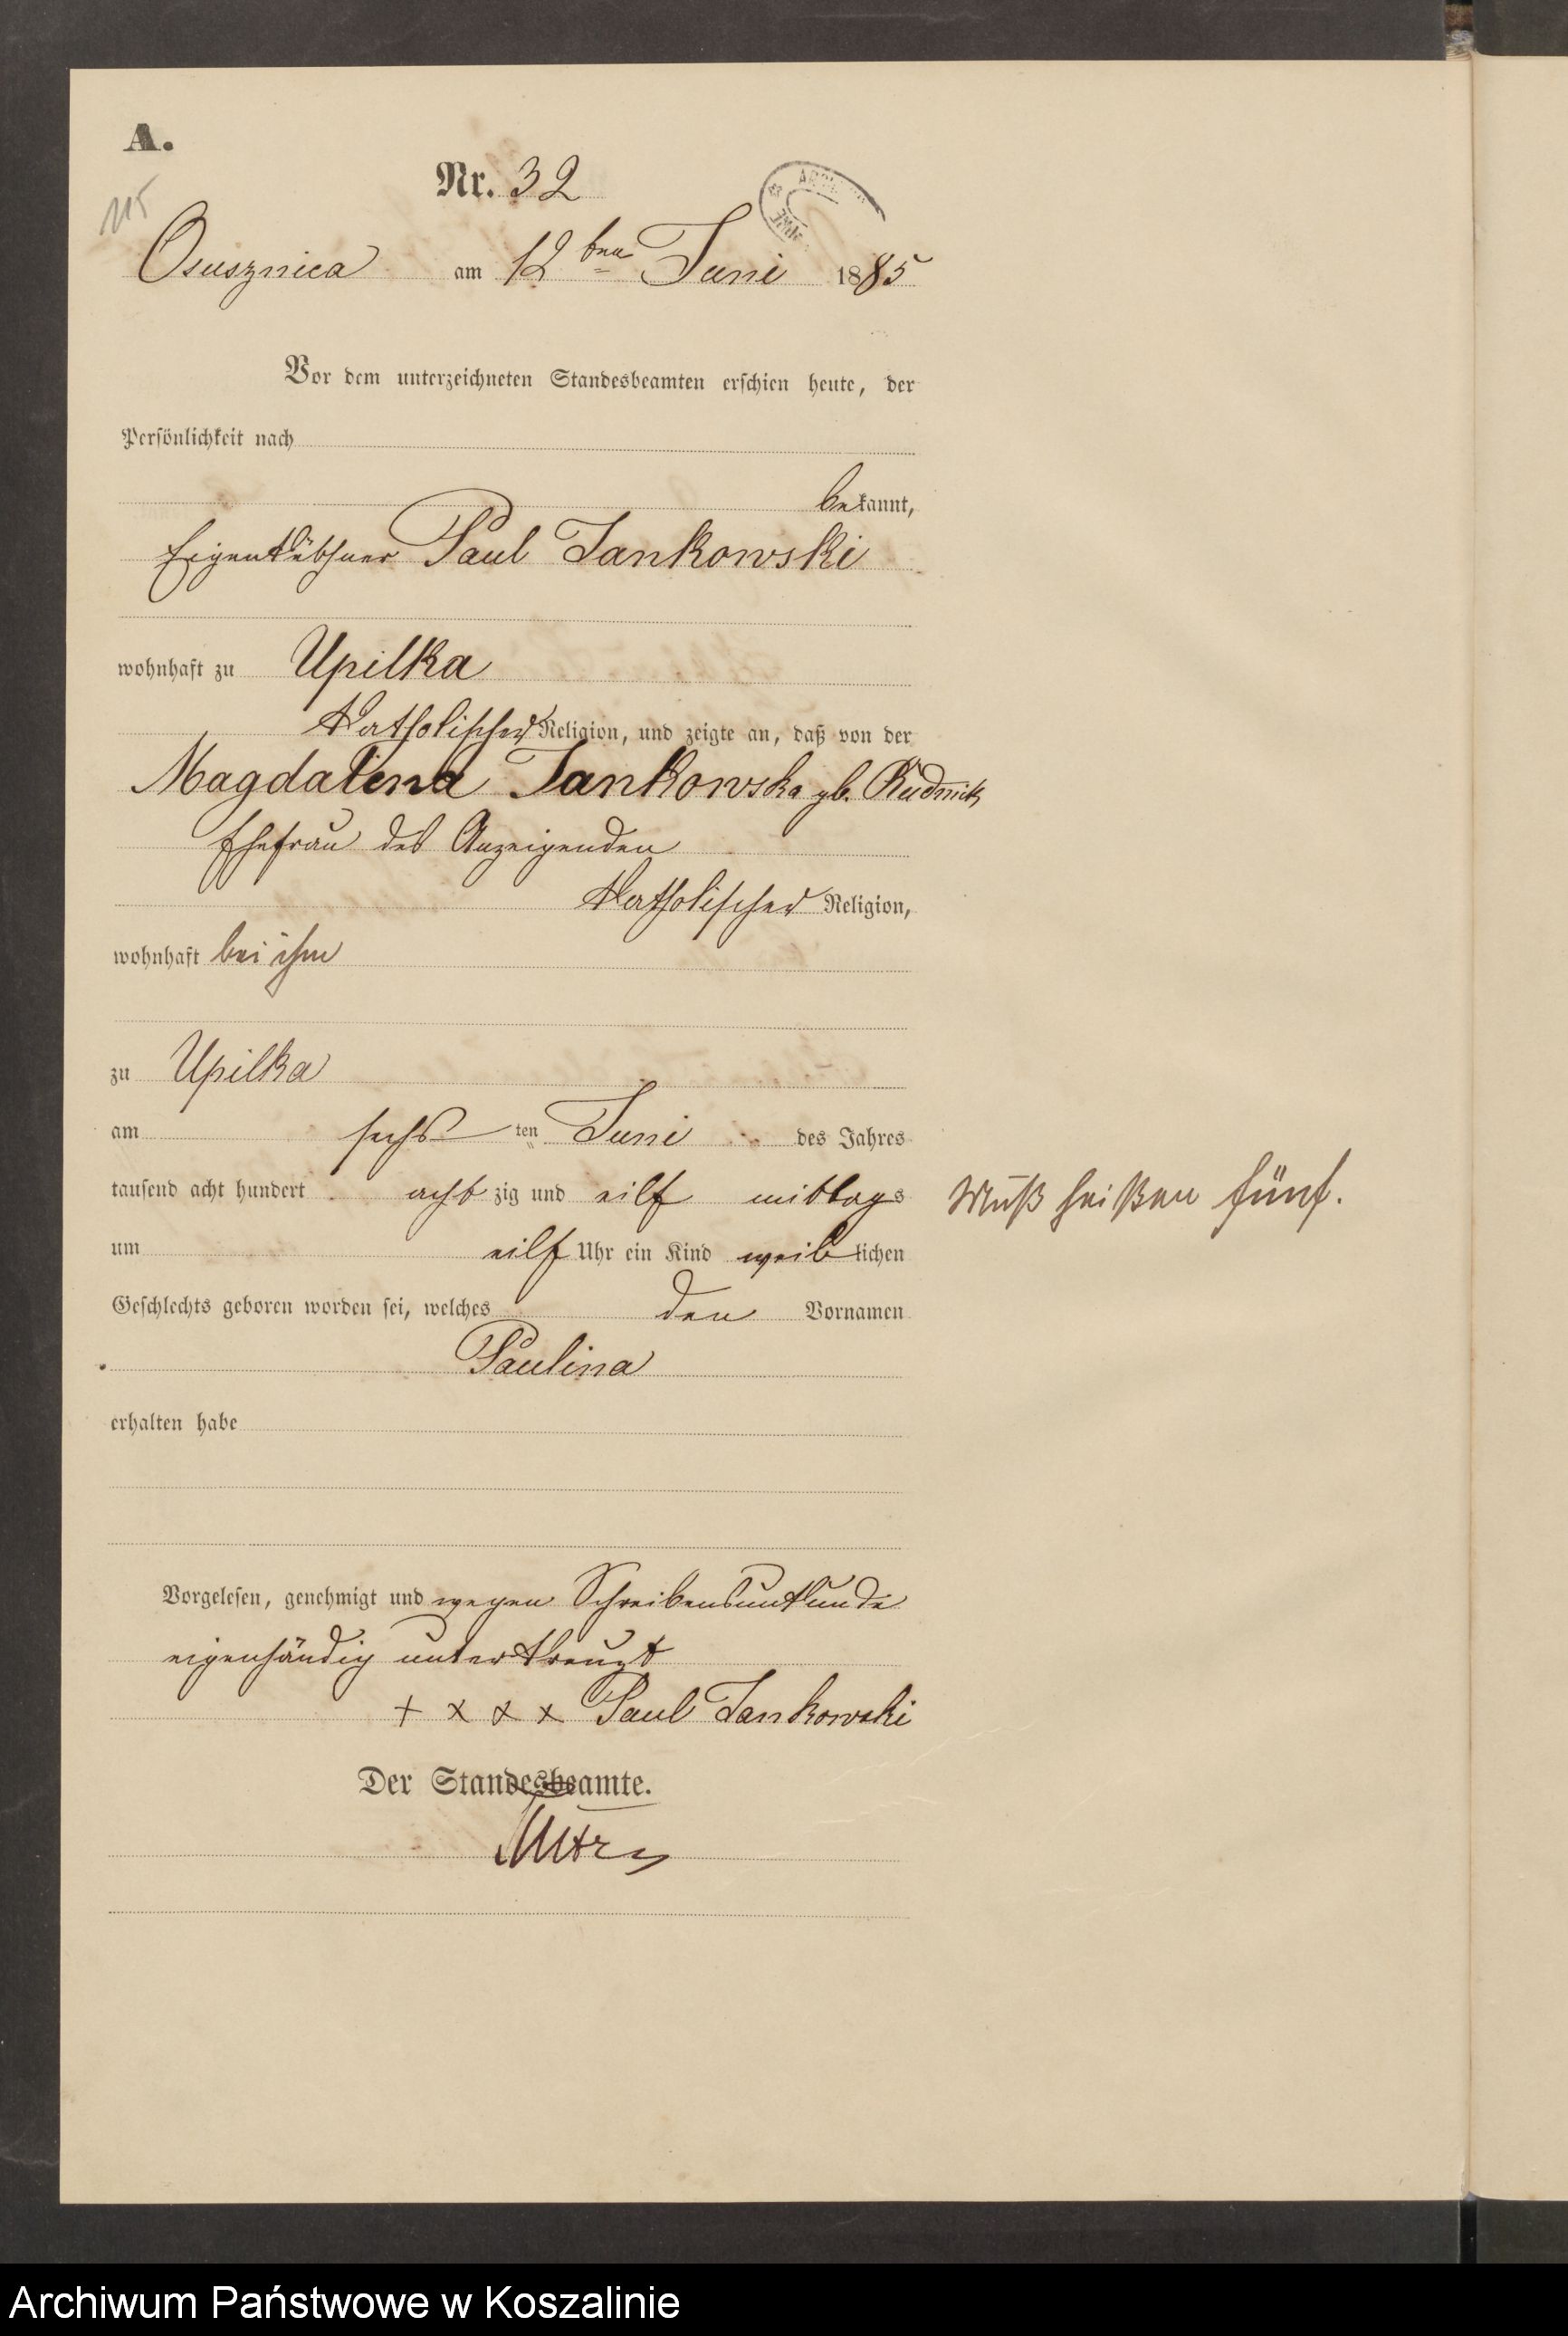 A.
Nr. 32
115
Osusznica am 12ten Juni 1885
Vor dem unterzeichneten Standesbeamten erschien heute, der
Persönlichkeit nach
bekannt,
Paul Jankowski
wohnhaft zu Upilka
katholischer Religion, und zeigte an, daß von der
Magdalena Jankowska gb. Rudnik
Ehefrau des Anzeigenden
katholischer Religion,
wohnhaft bei ihm
zu Upilka
am sechsten Juni des Jahres
tausend acht hundert achtzig und eilf mittags
Muß heißen fünf.
um eilf Uhr ein Kind weiblichen
Geschlechts geboren worden sei, welches den Vornamen
Paulina
erhalten habe
Vorgelesen, genehmigt und wegen Schreibensunkunde
eigenhändig unterkreuzt
+ x x x Paul Jankowski
Der Standesbeamte.
Archiwum Państwowe w Koszalinie